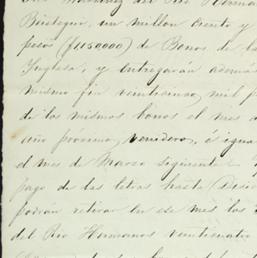 Sres Martinez del Rio Herman
Béistegui, un millon ciento y
pesos ($1.150000) de Bonos de la
Inglesa, y entregarán ademas
mismo fin veinticinco mil p
de los mismos bonos el mes d
año próximo venidero, é igua
el mes de Marzo siguiente. 
pago de las letras hasta Dici
podrán retirar en ese mes los
del Rio Hermanos veinticuatro